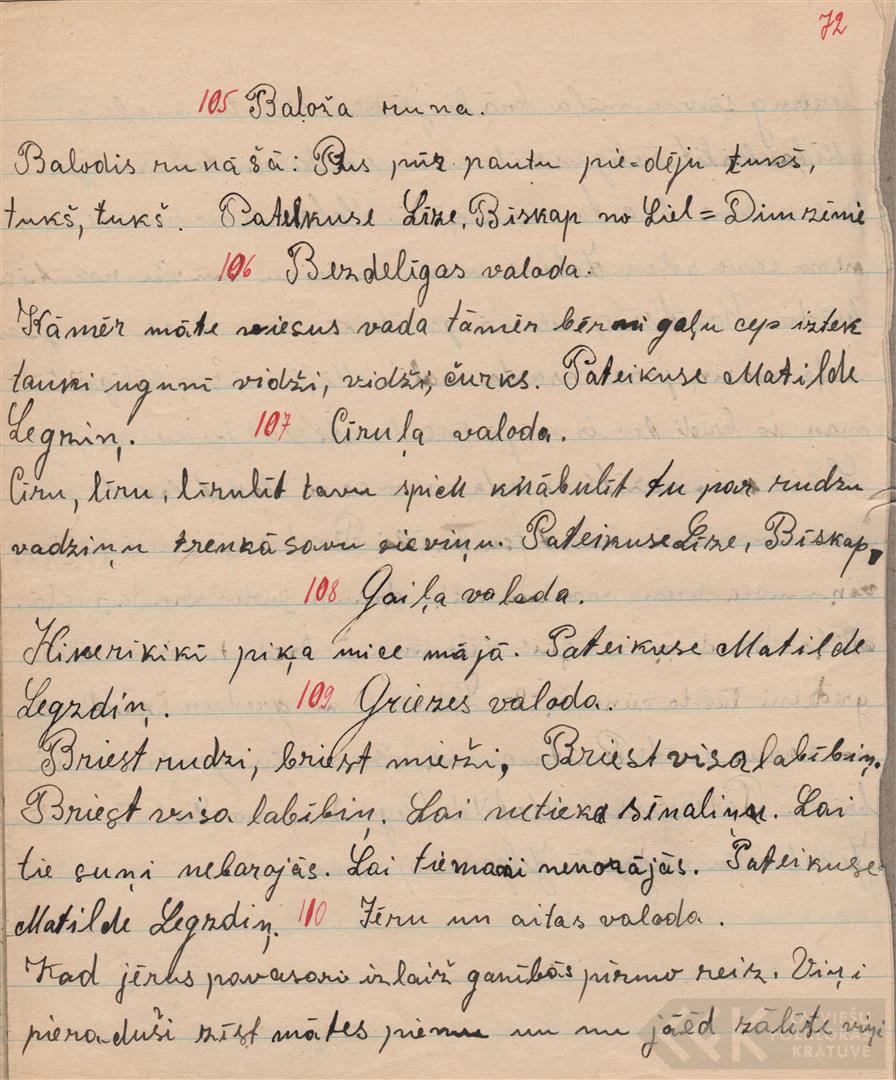 72
105 Baloža runa.
Balodis runā šā: Pus pūr pautu pie-dēju tukš,
tukš, tukš. Pateikuse Līze, Bīskap no Liel=Dimzēmē
106 Bezdelīgas valoda.
Kāmēr māte viesus vada tāmēr bērni gaļu cep iztek
tauki ugunī vidži, vidži, čurks. Pateikuse Matilde
Legzdiņ. 107 Cīruļa valoda.
Cīru, līru, līrulīt tavu spick knābulīt tu par rudzu
vadziņu trenkā savu sieviņu. Pateikuse Līze, Bīskap,
108 Gaiļa valoda.
Kikerikikī piķa mice mājā. Pateikuse Matilde
Legzdiņ. 109 Griezes valoda.
Briest rudzi, briest mieži, Briest visa labībiņ.
Briest visa labībiņ. Lai netieka sīnaliņu. Lai
tie suņi nebarojās. Lai tie nenorājās. Pateikuse
Matilde Legzdiņ. 110 Jēru un aitas valoda.
Kad jērus pavasarī izlaiž ganībās pirmo reiz. Viņi
pieraduši zīst mātes pienu un nu jāēd zālīte viņi
LATVIEŠU
FOLKLORAS
KRĀTUVE